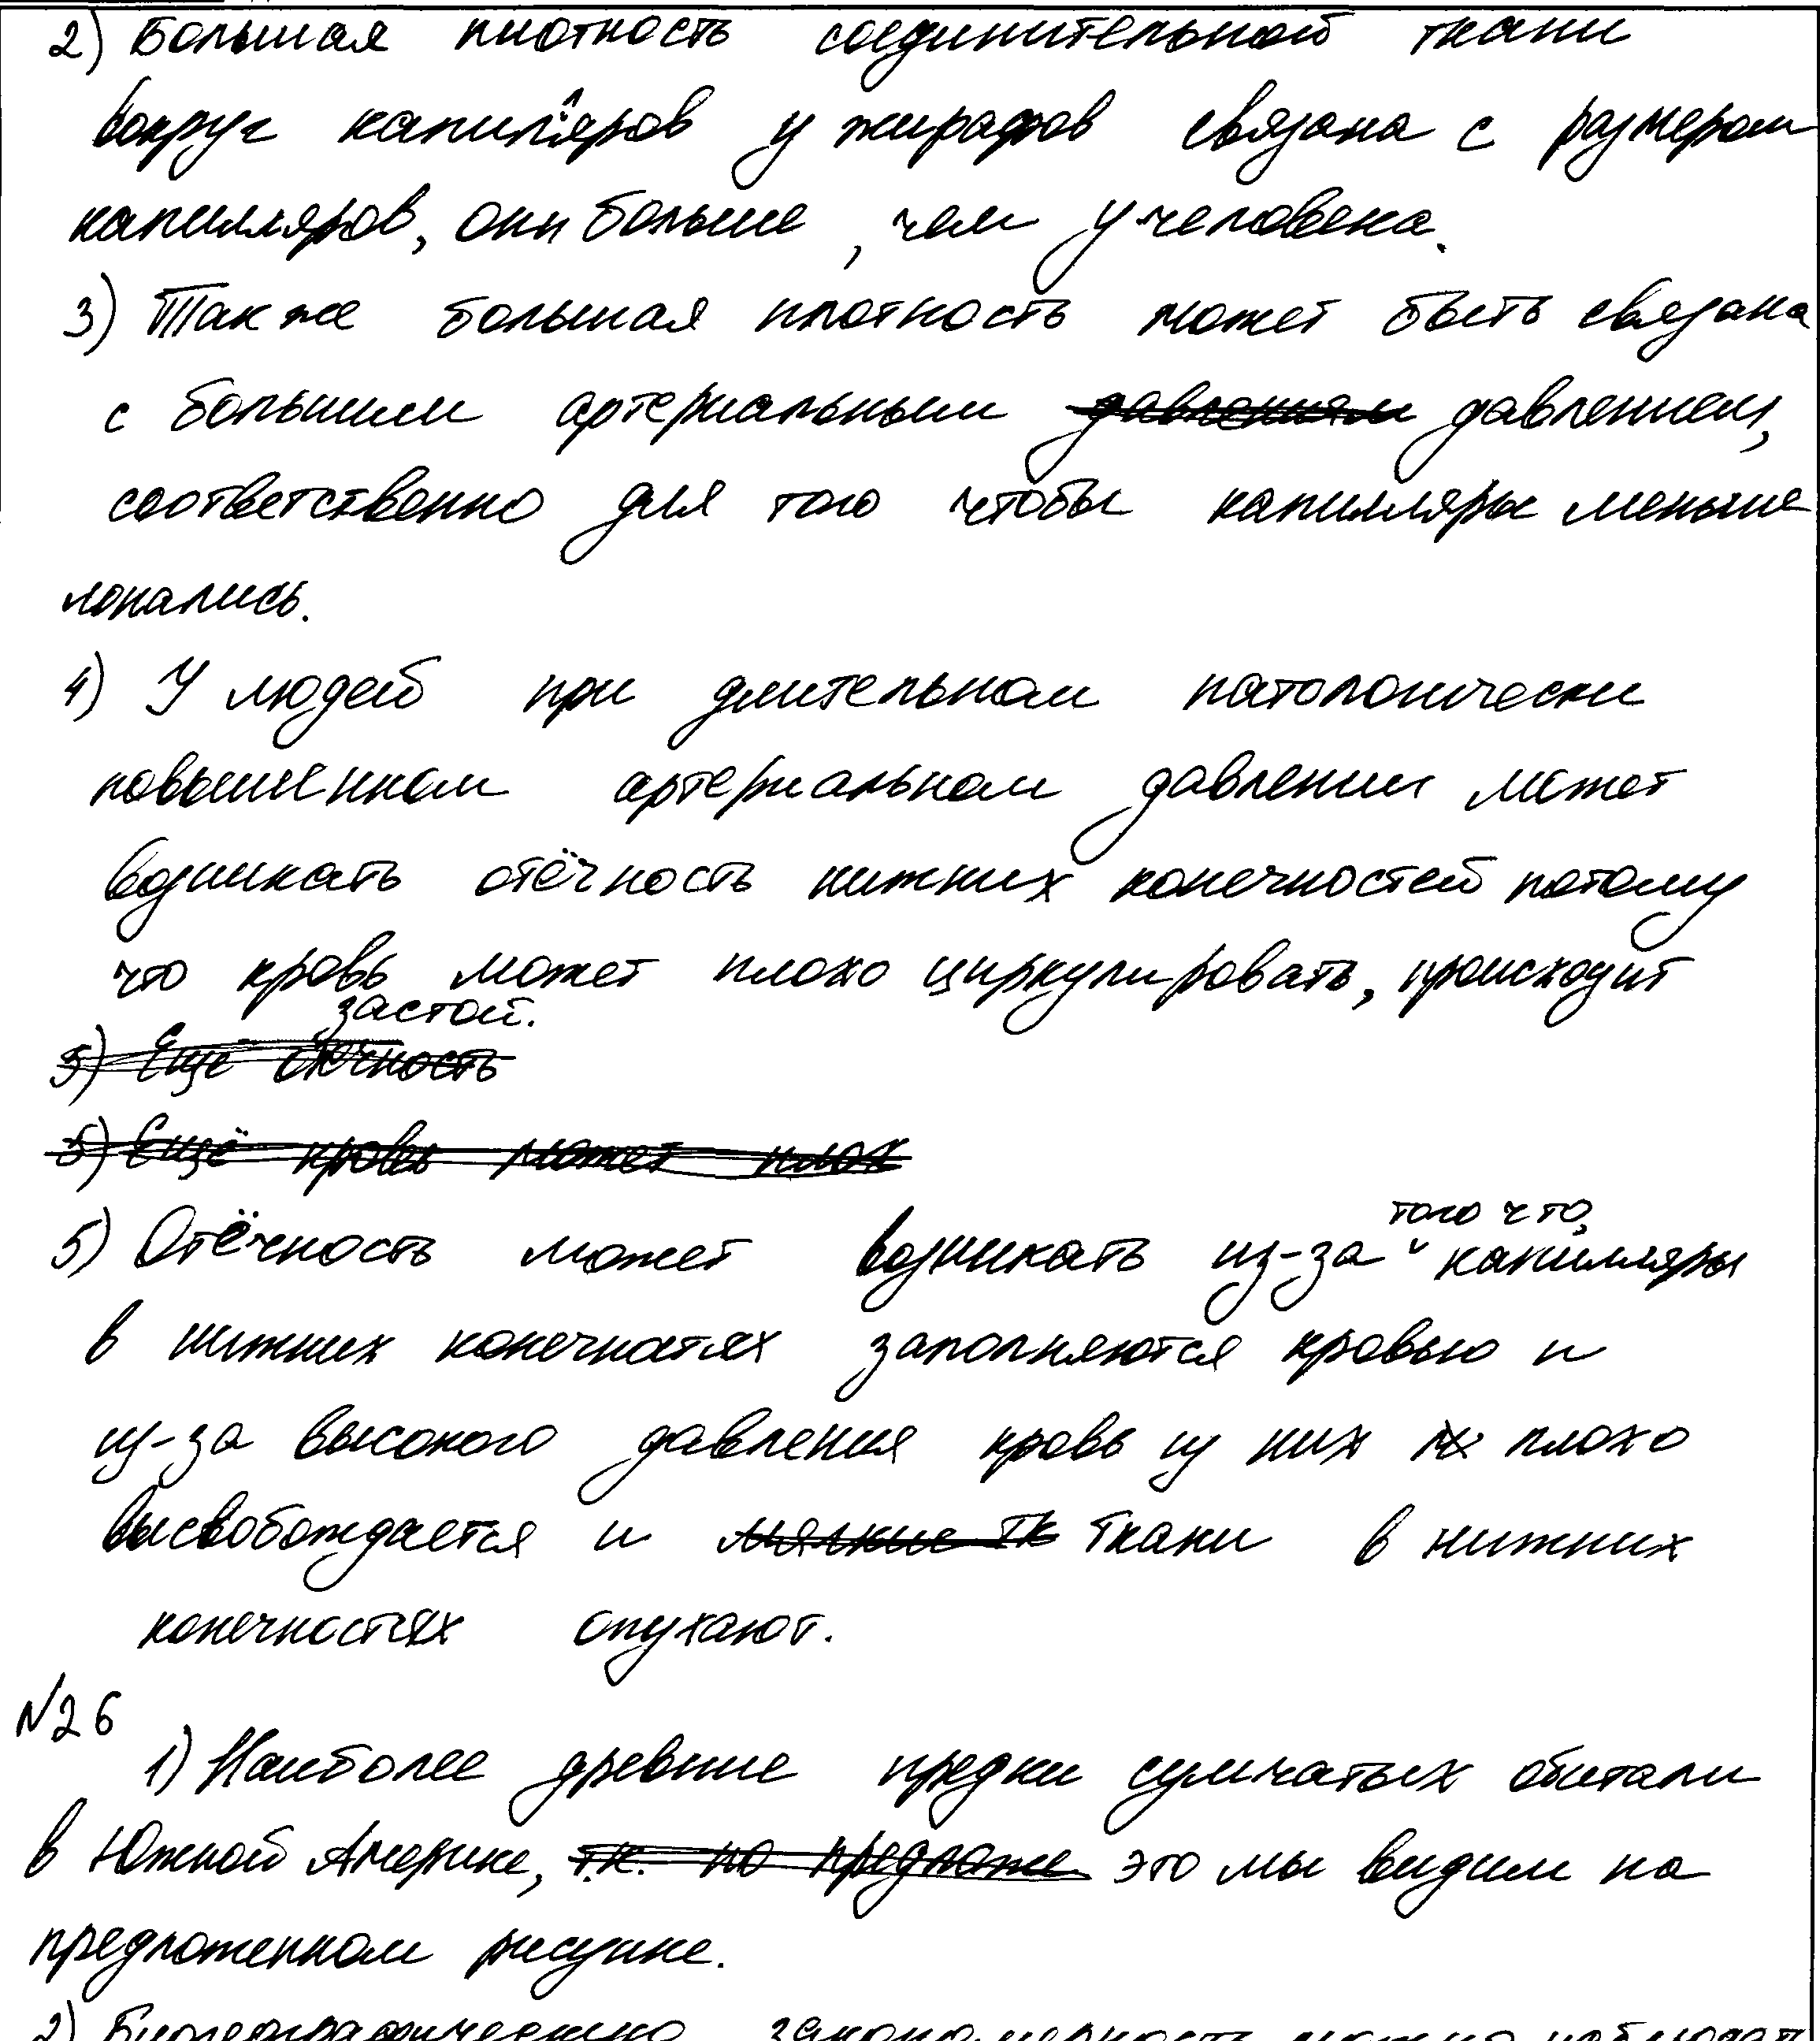 2) Большая плотность соединительной ткани
вокруг капилляров у жирафов связана с размером
капилляров, они больше, чем у человека.
3) Также большая плотность может быть связана
с большим артериальным давлением давлением,
соответственно для того чтобы капилляры меньше
лопались.
4) У людей при длительном патологически
повышенном артериальном давлении может
возникать отёчность нижних конечностей потому
что кровь может плохо циркулировать, происходит
застой.
5) Ещё отёчность
5) Ещё кровь может плох
того что,
5) Отёчность может возникать из-за капилляры
в нижних конечнотях заполняются кровью и
из-за высокого давления кровь из них плохо
высвобождается и мягкие тк ткани в нижних
конечностях опухают.
№26
1) Наиболее древние предки сумчатых обитали
в Южной Америке, т.к. по предложе это мы видим на
предложенном рисунке.
2)